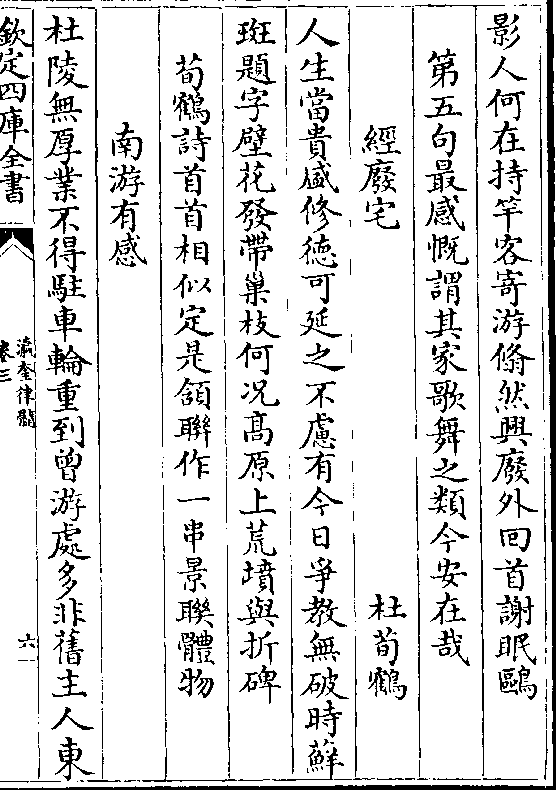 影人何在持竿客寄游翛然興廢外回首謝眠鷗
第五句最感慨謂其家歌舞之類今安在哉
經廢宅　杜荀鶴
人生當貴盛修徳可延之不慮有今日爭教無破時蘚
斑題字壁花發帶巢枝何况髙原上荒墳與折碑
荀鶴詩首首相似定是頷聯作一串景聯體物
南游有感
杜陵無厚業不得駐車輪重到曾游處多非舊主人東
欽定四庫全書
瀛奎律髓
卷三
六